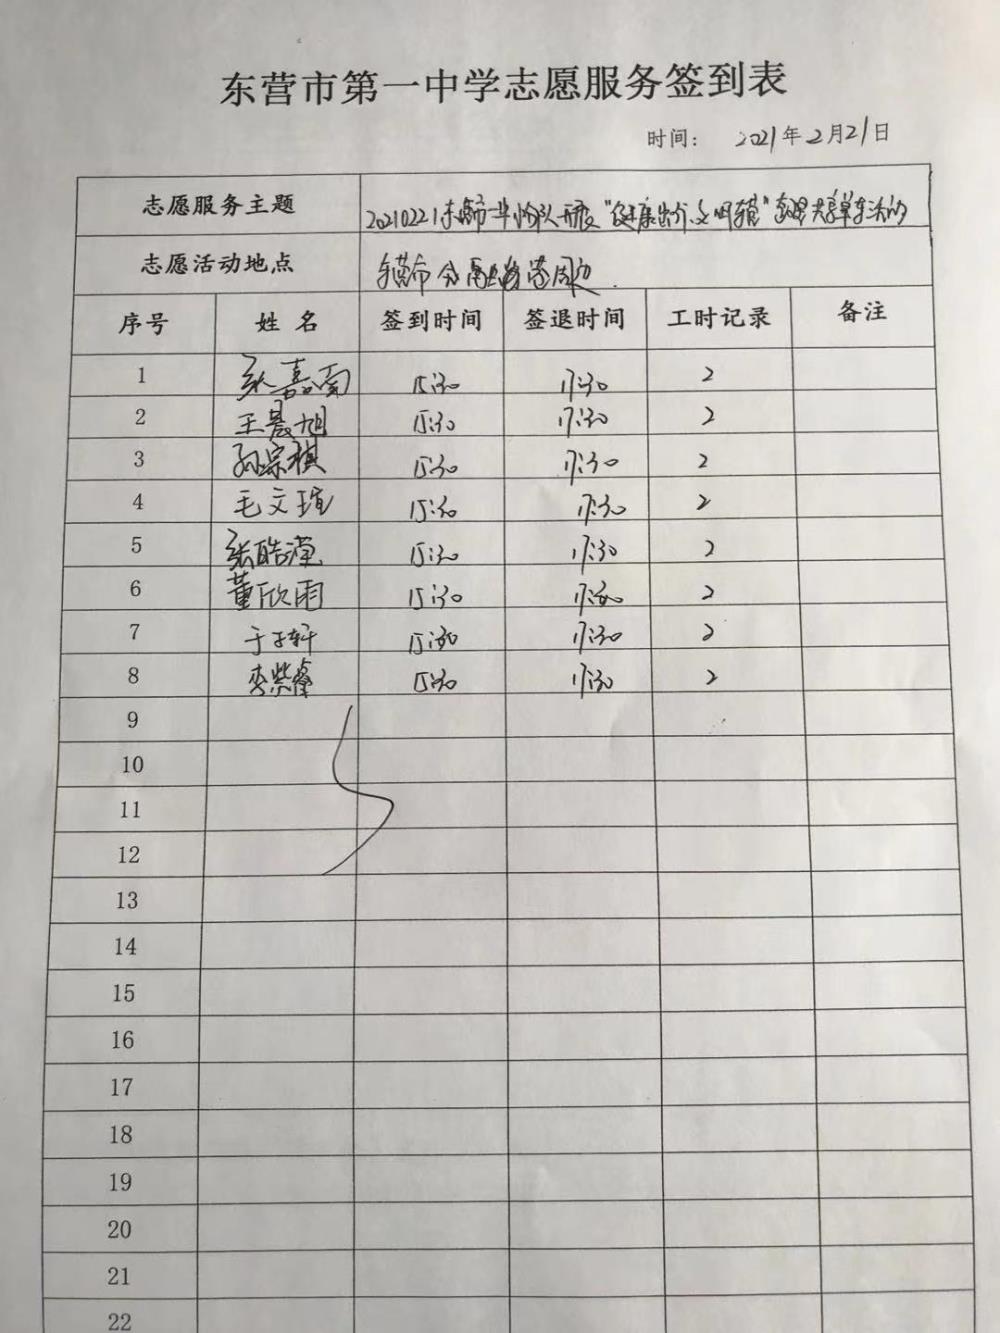 东营市第一中学志愿服务签到表
时间： 2021年2月21日
志愿服务主题 20210221东营市一中小分队开展“健康出行、文明 ”整理共享单车活动
志愿活动地点 东营市 周边.
序号 姓名 签到时间 签退时间 工时记录 备注
1 张嘉南 15:30 17:30 2
2 王晨旭 15:30 17:30 2
3 孙宗祺 15:30 17:30 2
4 毛文瑄 15:30 17:30 2
5 张皓滢 15:30 17:30 2
6 董欣雨 15:30 17:30 2
7 于子轩 15:30 17:30 2
8 李紫 15:30 17:30 2
9
10
11
12
13
14
15
16
17
18
19
20
21
22